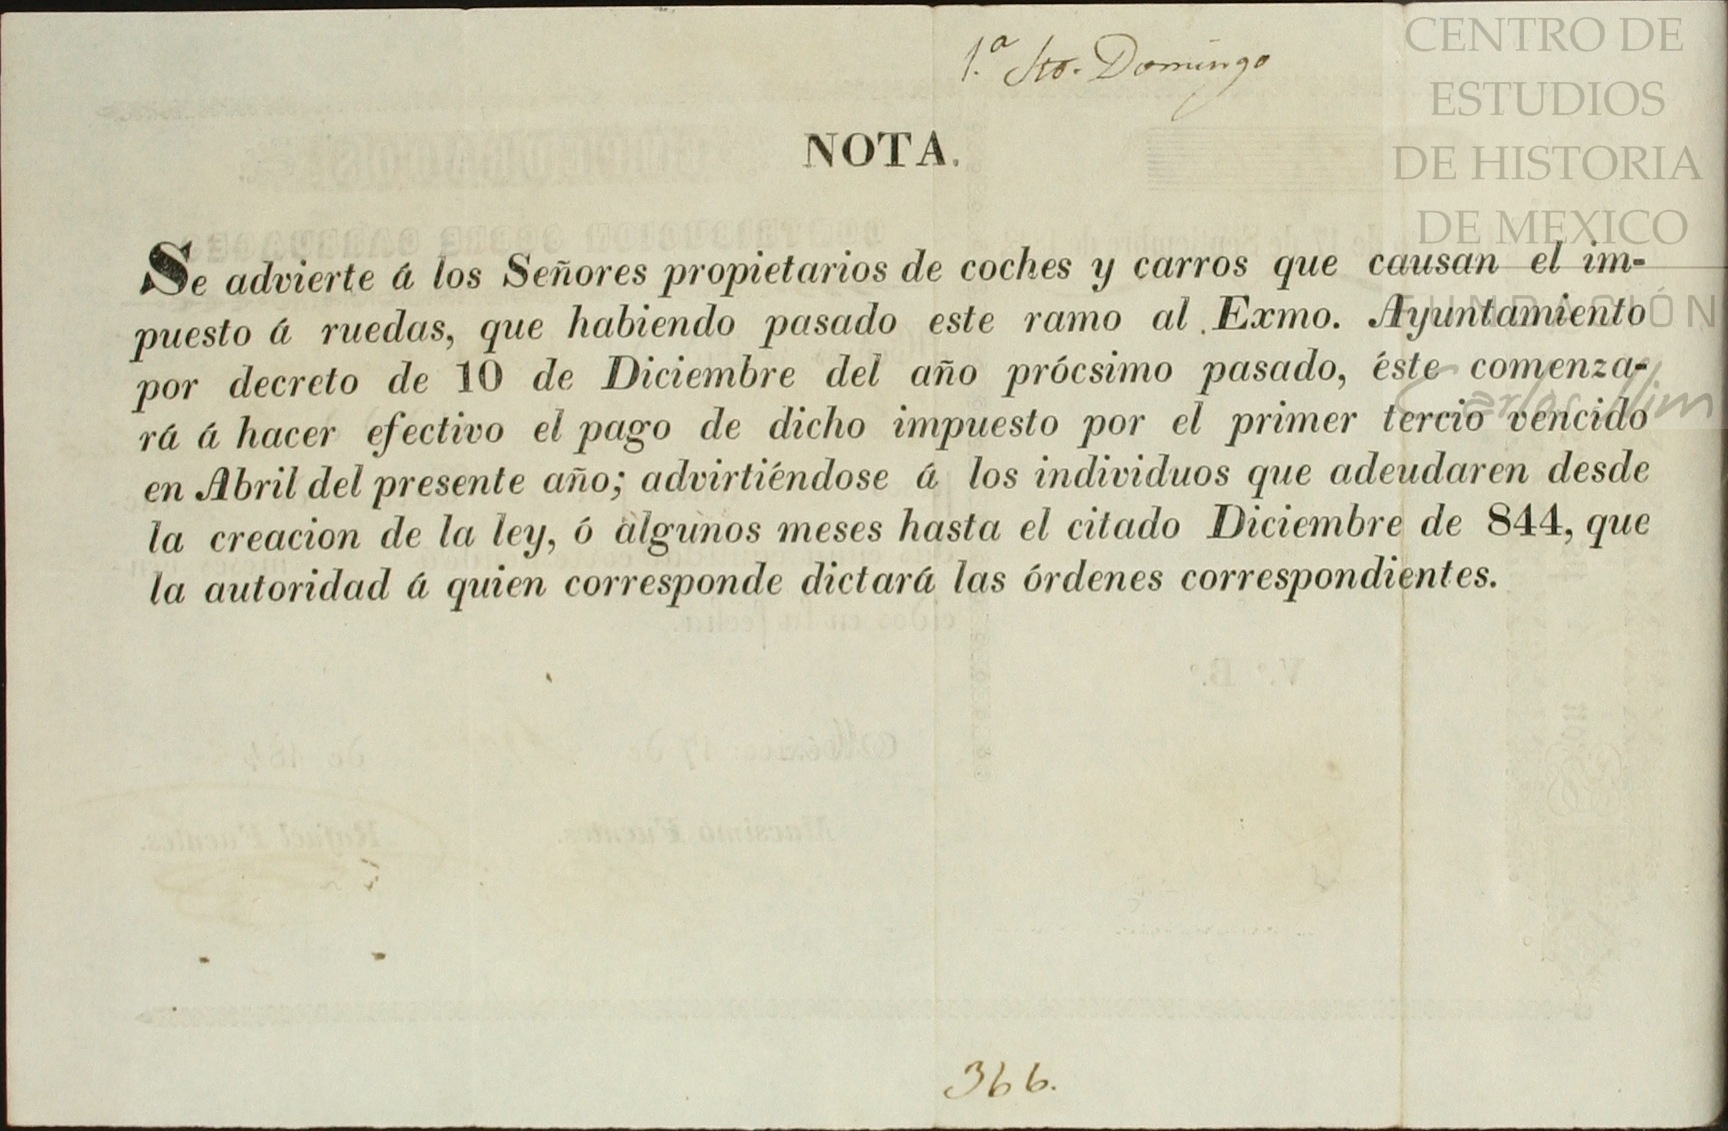 1.ª Sto. Domingo
NOTA.
Se advierte á los Señores propietarios de coches y carros que causan el im-
puesto á ruedas, que habiendo pasado este ramo al Exmo. Ayuntamiento
por decreto de 10 de Diciembre del año prócsimo pasado, éste comenza-
rá á hacer efectivo el pago de dicho impuesto por el primer tercio vencido
en Abril del presente año; advirtiéndose á los individuos que adeudaren desde
la creacion de la ley, ó algunos meses hasta el citado Diciembre de 844, que
la autoridad á quien corresponde dictará las órdenes correspondientes.
366.
CENTRO DE
ESTUDIOS
DE HISTORIA
DE MEXICO
FUNDACIÓN
Carlos Slim